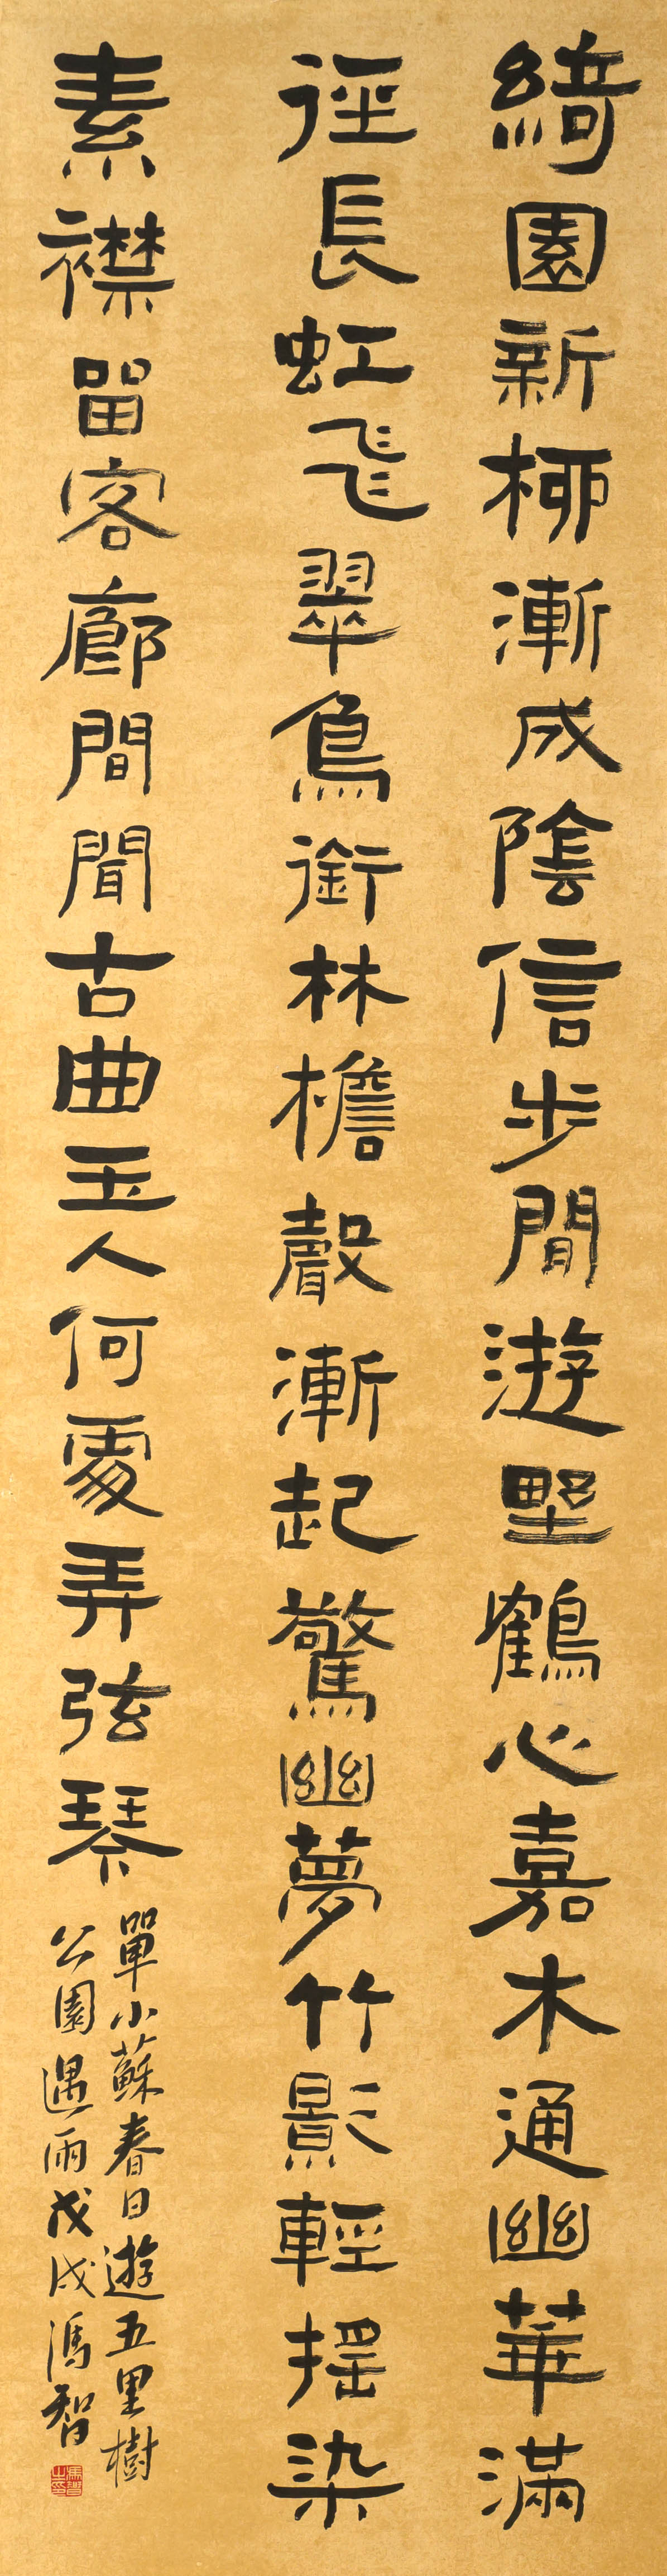 綺園新栁漸成陰信步閒遊野鶴心嘉木通幽華滿
徑長虹飛翠鳥銜林檐聲漸起驚幽夢竹影輕搖染
素襟留客廊間聞古曲玉人何處弄弦琴
單小蘇春日遊五里樹
公園遇雨戊戌馮智